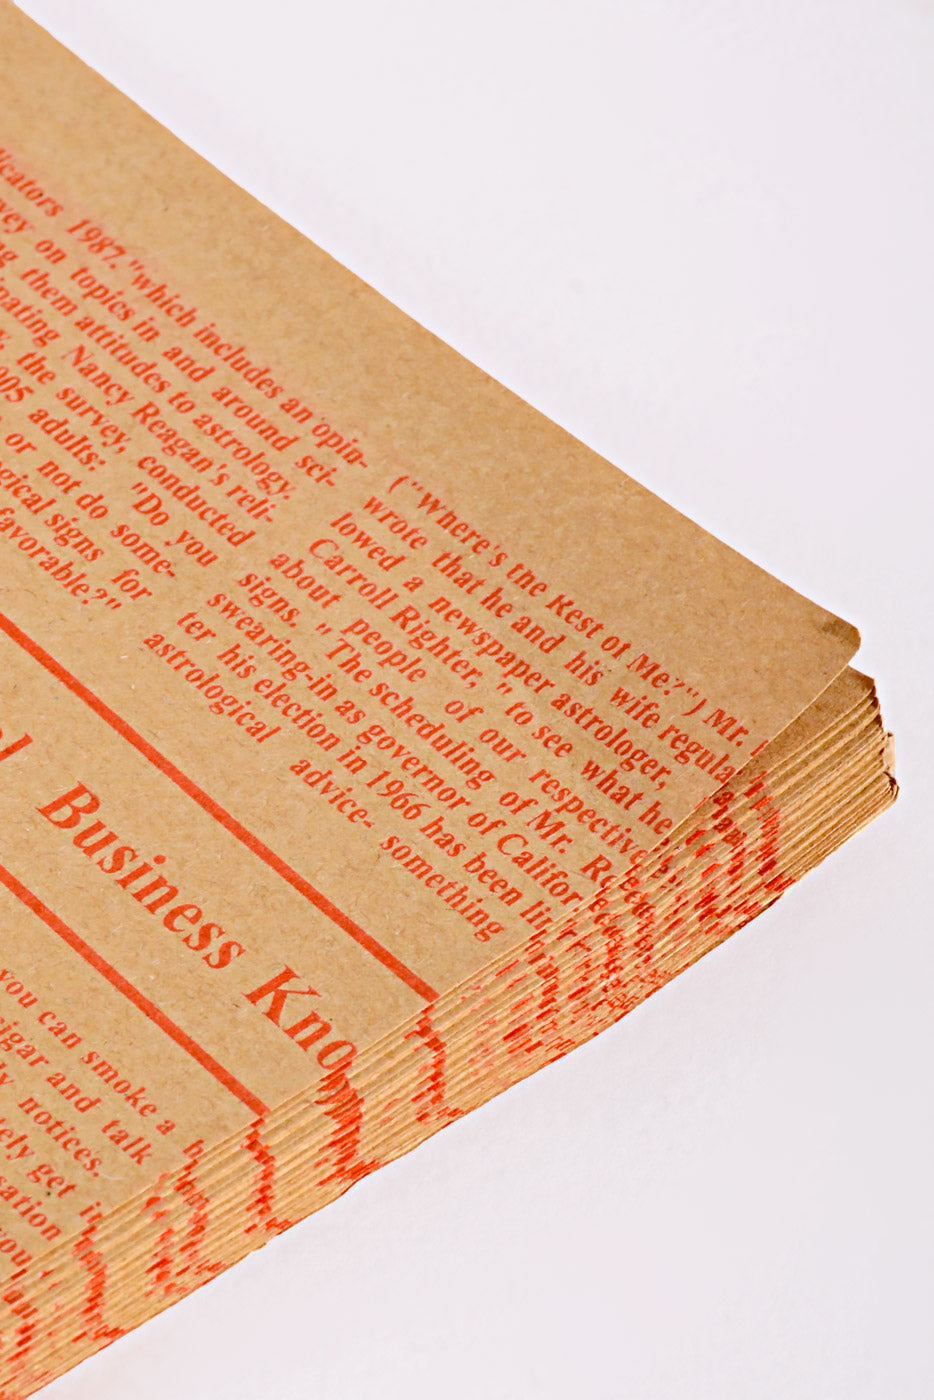 licators 1987."which includes an opin-
vey on topics in and around sci-
ng them attitudes to astrology.
nating Nancy Reagan's reli-
the survey, conducted
005 adults: "Do you
or not do some-
ogical signs for
favorable?"
("Where's the Rest of Me?") Mr.
wrote that he and his wife regula
lowed a newspaper astrologer,
Carroll Righter, "to see what he
about people of our respective
signs. "The scheduling of Mr. Re
swearing-in as governor of Califor
ter his election in 1966 has been li
astrological advice- something
Business Kno
you can smoke a
cigar and talk
ly notices.
tely get i
sation
you